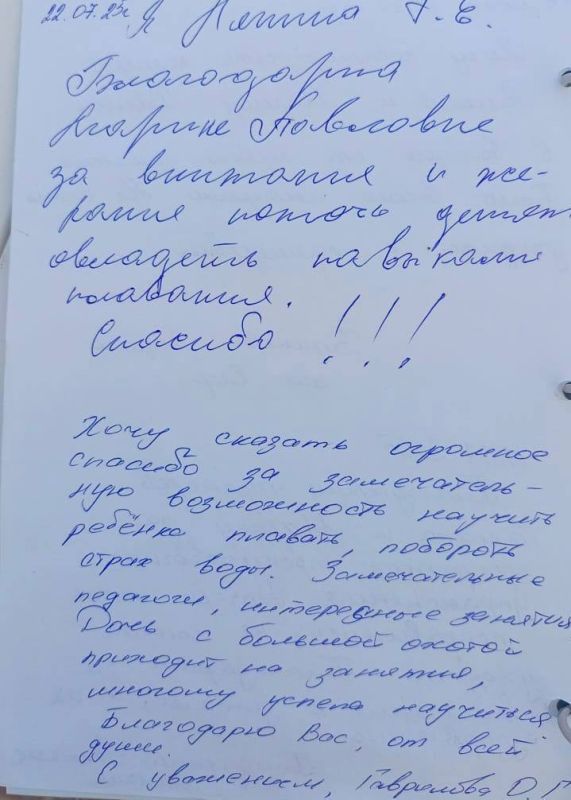 22.07.23г. Я Г.Е.
Благодарна
Павловне
за внимания и же-
рания помочь детям
овладеть навыками
плавания.
Спасибо !!!
Хочу сказать огромное
спасибо за замечатель-
ную возможность научить
ребёнка плавать, побороть
страх воды. Замечательные
педагоги, интересные занятия
Дочь с большой охотой
приходит на занятия,
многому успела научиться.
Благодарю Вас, от всей
души.
С уважением, Гаврилова О.Г